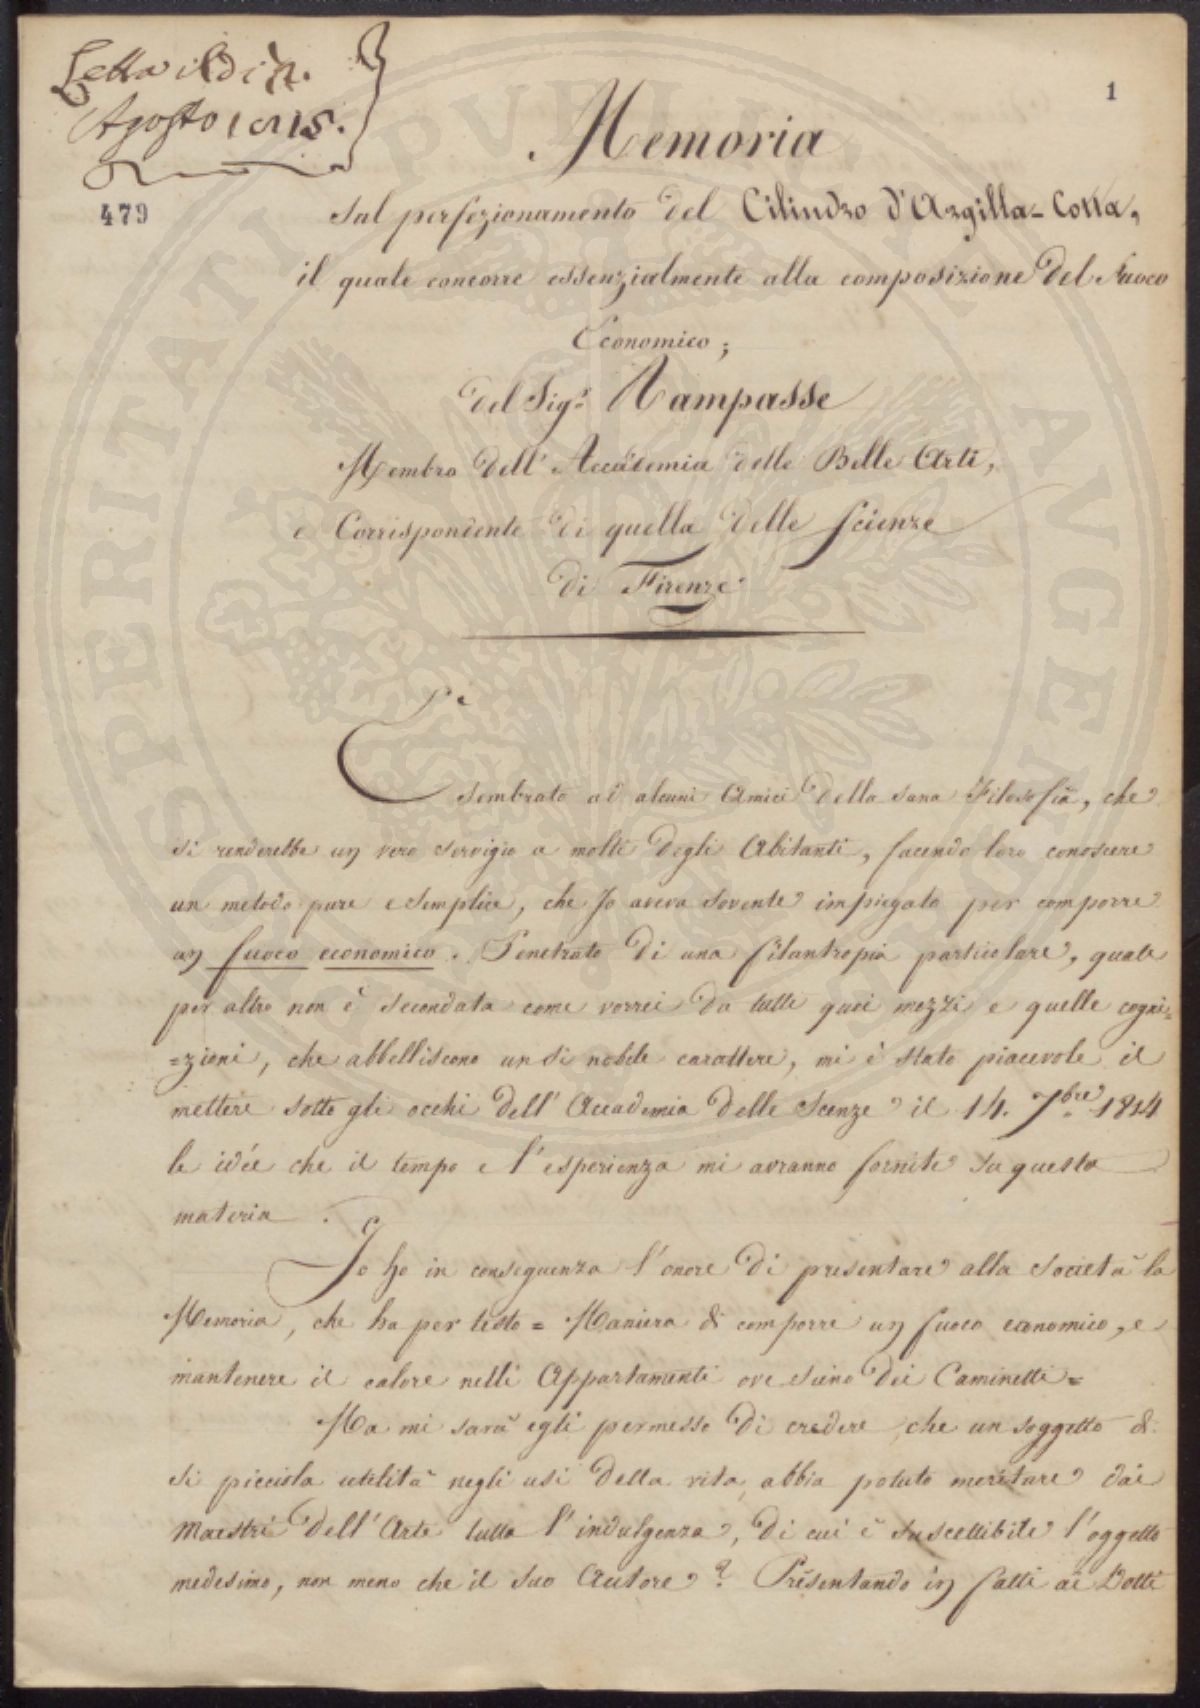 Letta il dì 2.
Agosto 1815.
1
479
Memoria
Sul perfezionamento del Cilindro d'Argilla-Cotta,
il quale concorre essenzialmente alla composizione del Fuoco
Economico;
del Sigr. Rampasse
Membro dell'Accademia delle Belle Arti,
e Corrispondente di quella delle Scienze
di Firenze
È
sembrato ad alcuni Amici della sana Filosofia, che
si renderebbe un vero servigio a molti degli Abitanti, facendo loro conoscere
un metodo pure e semplice, che Jo aveva sovente impiegato per comporre
un fuoco economico. Penetrato di una filantropia particolare, quale
per altro non è secondata come vorrei da tutti quei mezzi e quelle cogni=
=zioni, che abbelliscono un sì nobile carattere, mi è stato piacevole il
mettere sotto gli occhi dell'Accademia delle Scenze il 14. 7bre 1814
le idée che il tempo e l'esperienza mi avranno fornite su questa
materia.
Jo ho in conseguenza l'onore di presentare alla Società la
Memoria, che ha per testo = Maniera di comporre un fuoco economico, e
mantenere il calore nelli Appartamenti ove sieno dei Caminetti =
Ma mi sarà egli permesso di credere, che un soggetto di
sì picciola utilità negli usi della vita, abbia potuto meritare dai
Maestri dell'Arte tutta l'indulgenza, di cui è suscettibile l'oggetto
medesimo, non meno che il suo Autore? Presentando in fatti ai Dotti
PVBLICAE
PROSPERITATI
AVGENDAE